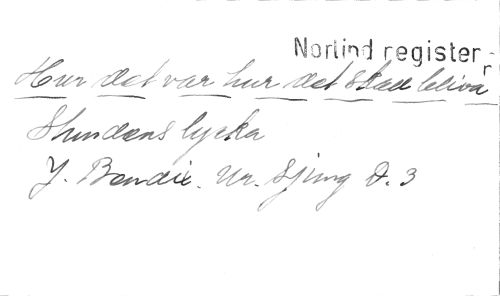 Norlind register
Hur det var hur det skall bliva
Stundens lycka
Y. Bendix. Ur. Sjung D. 3